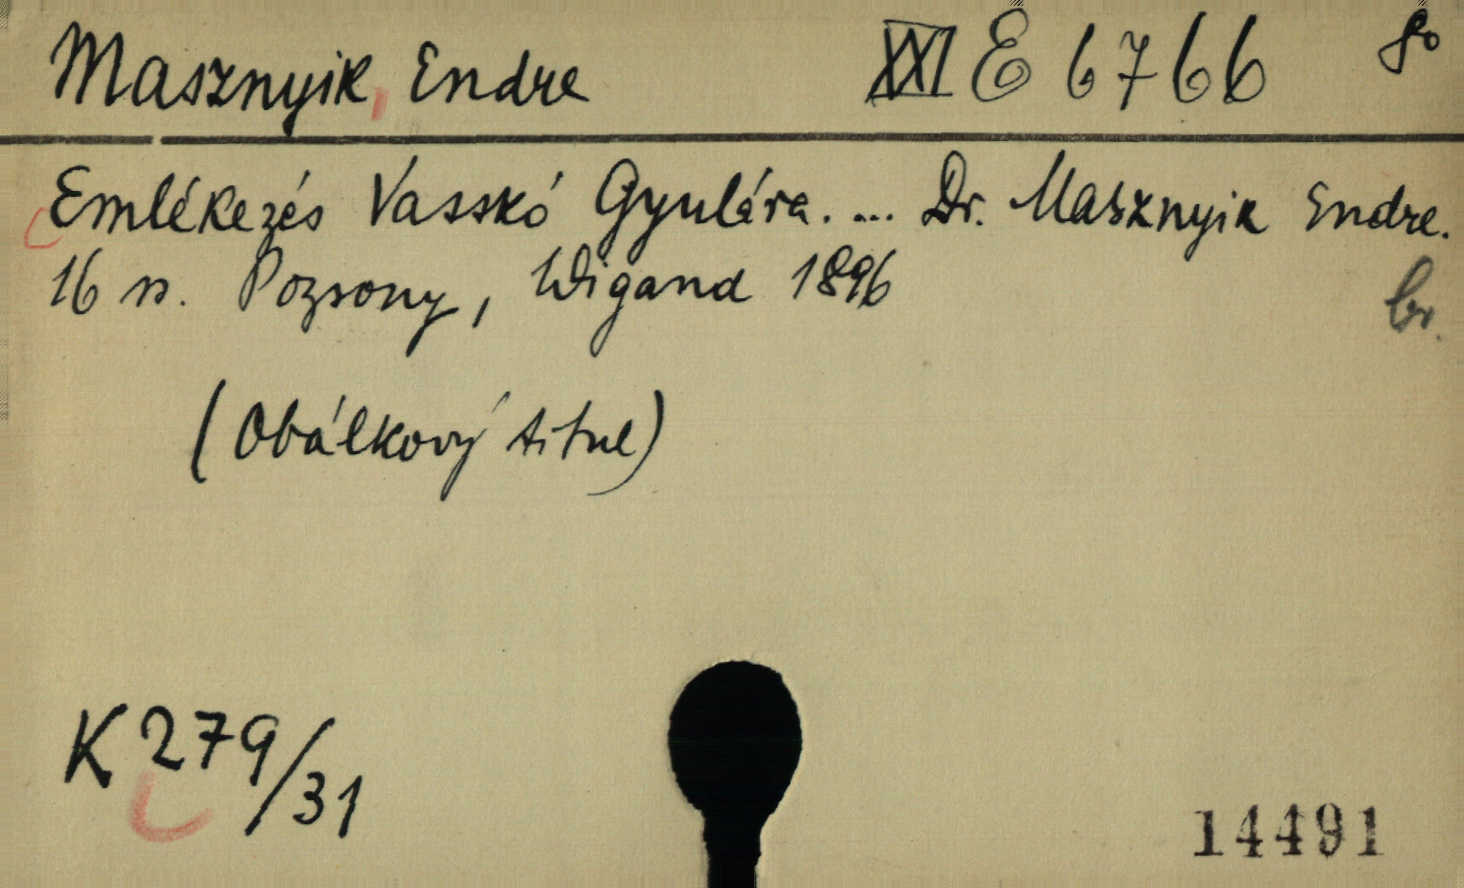 Masznyik, Endre XXI E 6766 8°
Emlékezés Vasskó Gyulára. ... Dr. Masznyik Endre.
16 s. Pozsony, Wigand 1896 br.
(Obálkový titul)
K 279/31
14491